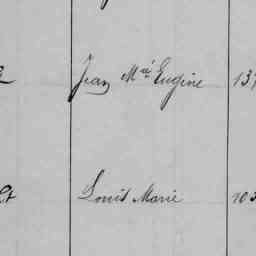 Jean Mie Eugène 137
Louis Marie 103